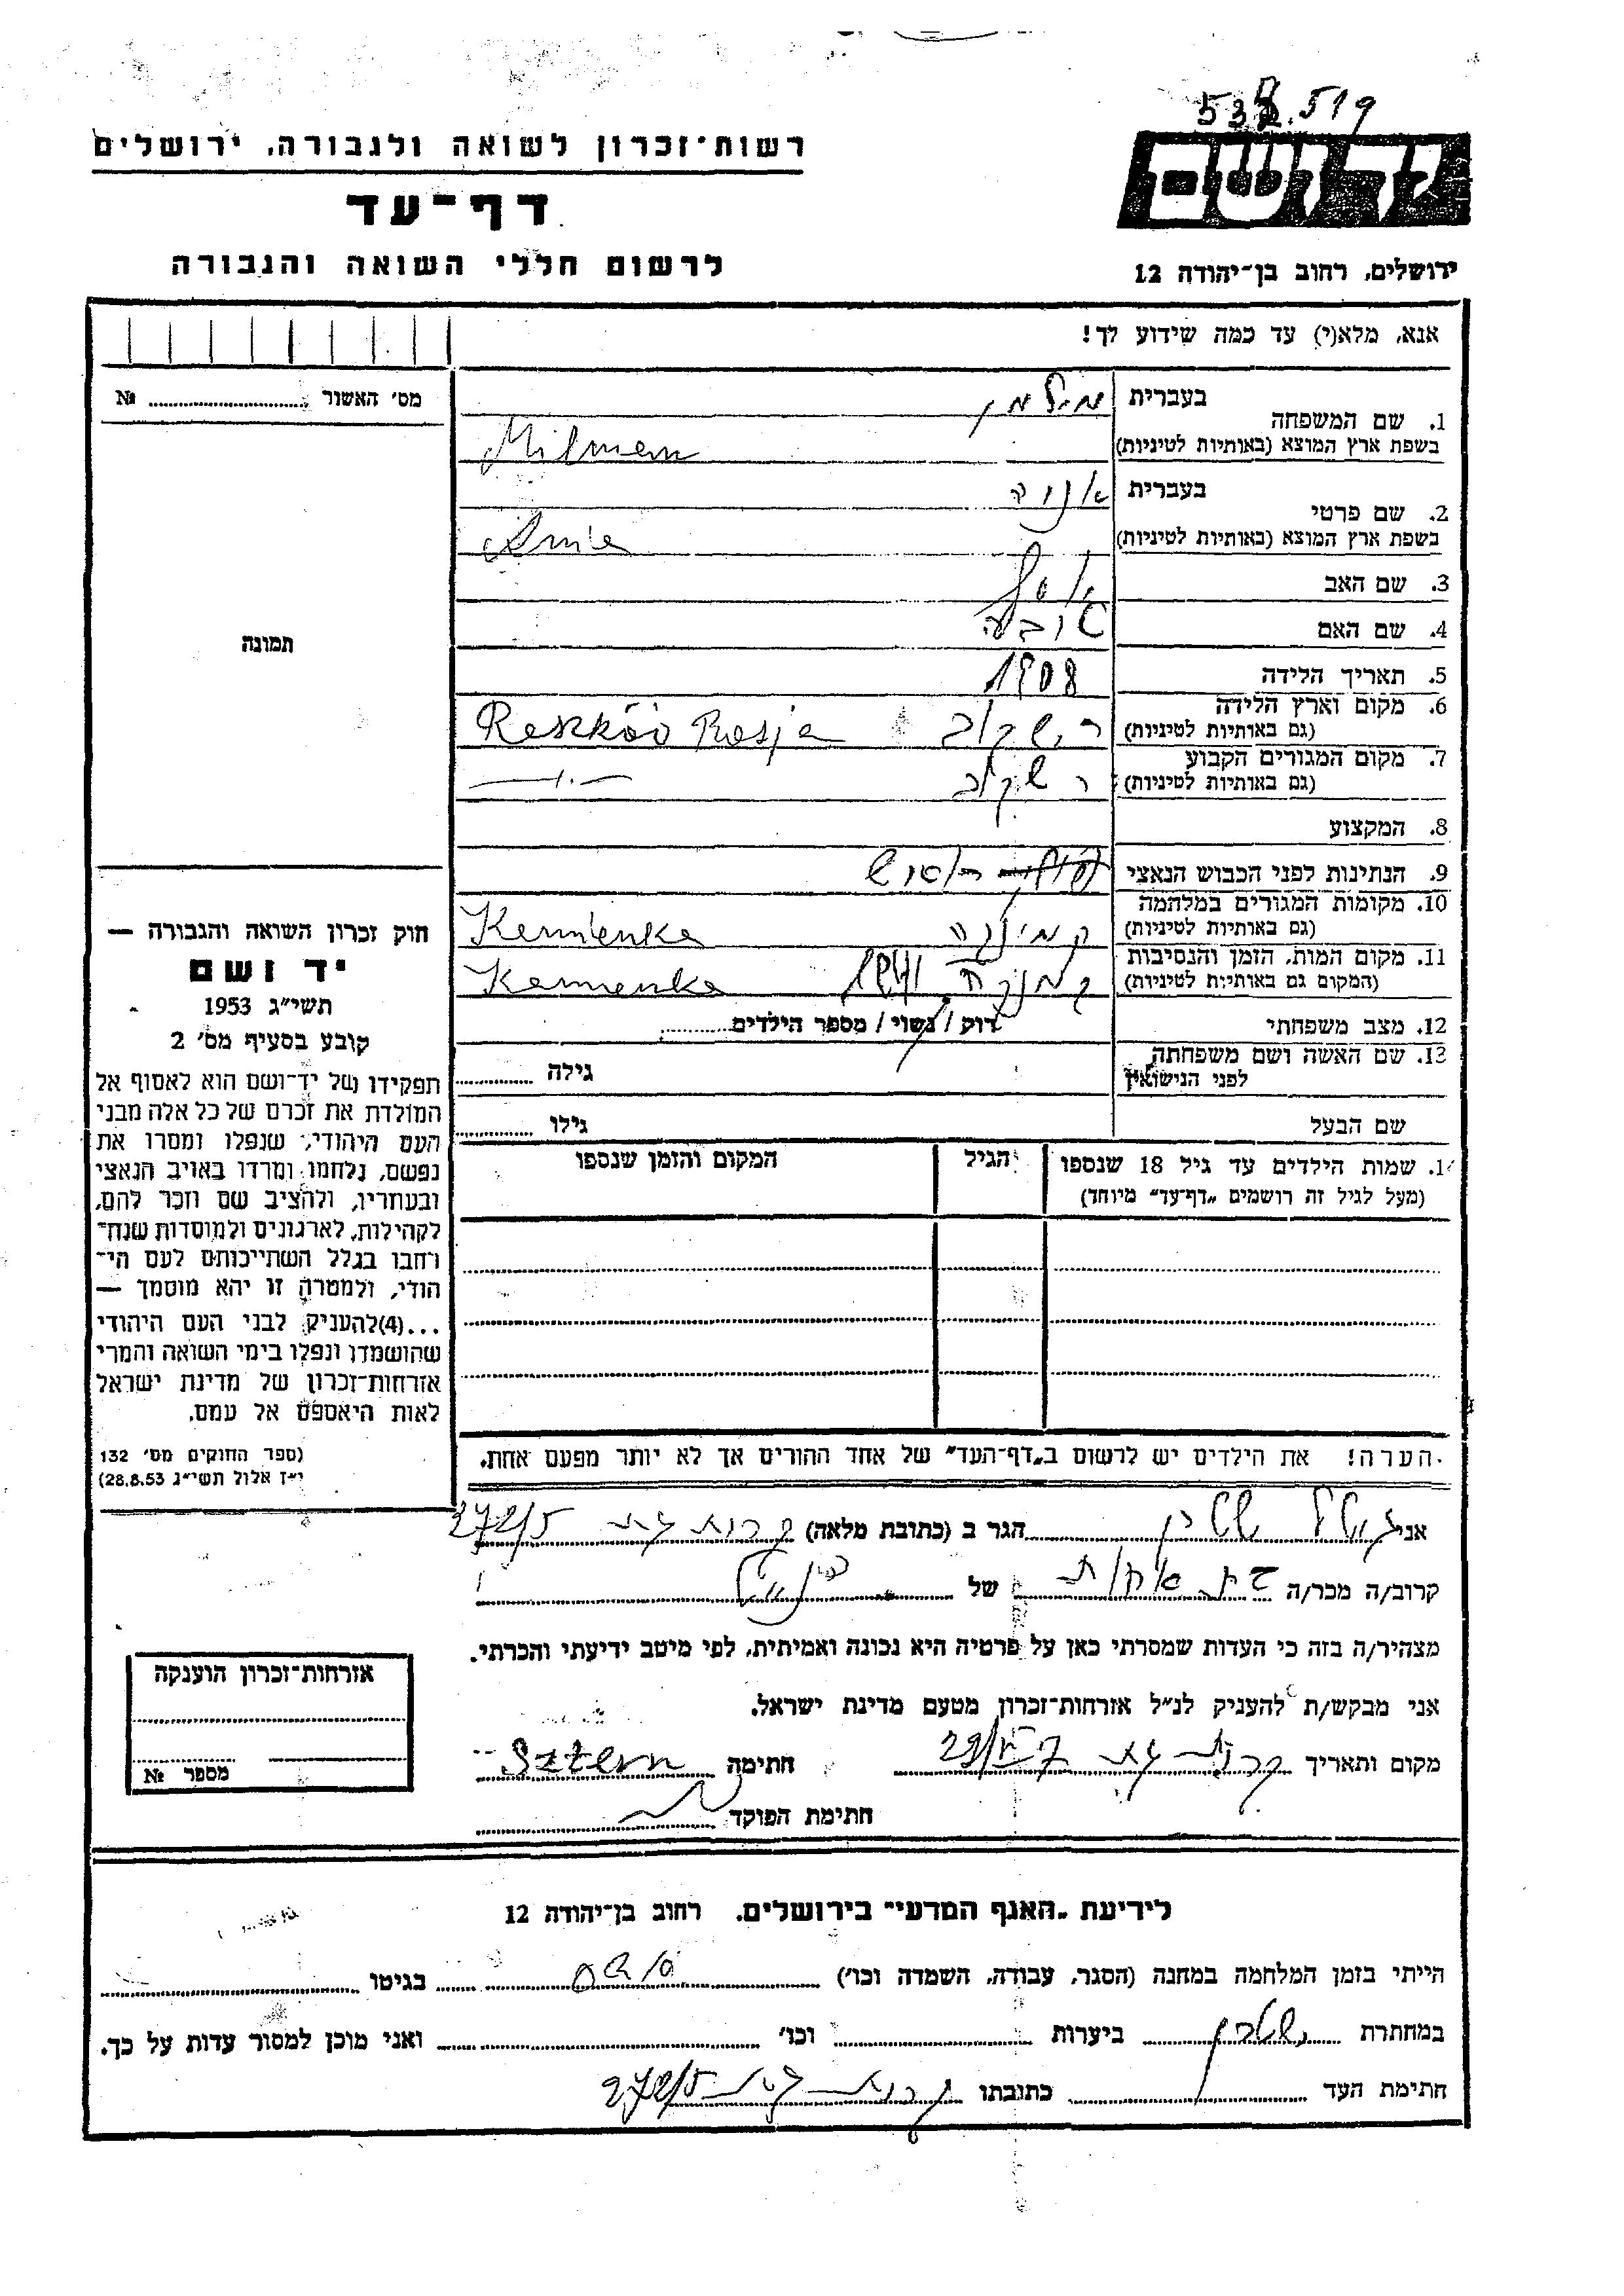 538.519
רשות־זכרון לשואה ולגבורה, ירושלים
דף־עד
לרשום חללי השואה והגבורה
ידושם
ירושלים, רחוב בן־יהודה 12
אנא, מלא(י) עד כמה שידוע לך!
מס' האשור № 
תמונה
1. שם המשפחה
בעברית מילמן
בשפת ארץ המוצא (באותיות לטיניות) Milman
2. שם פרטי
בעברית אניה
בשפת ארץ המוצא (באותיות לטיניות) Ania
3. שם האב
4. שם האם
5. תאריך הלידה 1908
6. מקום וארץ הלידה
(גם באותיות לטיניות) רשקוב Reszków Rosja
7. מקום המגורים הקבוע
(גם באותיות לטיניות) רשקוב —"—
8. המקצוע
9. הנתינות לפני הכבוש הנאצי
10. מקומות המגורים במלחמה
(גם באותיות לטיניות) קמינקה Kamienka
11. מקום המות, הזמן והנסיבות
(המקום גם באותיות לטיניות) קמנקה 1941 Kamienka
12. מצב משפחתי רוק / נשוי / מספר הילדים
13. שם האשה ושם משפחתה
לפני הנישואין גילה
שם הבעל גילו
14. שמות הילדים עד גיל 18 שנספו
(מעל לגיל זה רושמים „דף־עד" מיוחד)
הגיל
המקום והזמן שנספו
הערה! את הילדים יש לרשום ב„דף־העד" של אחד ההורים אך לא יותר מפעם אחת.
חוק זכרון השואה והגבורה —
יד ושם
תשי"ג 1953
קובע בסעיף מס' 2
תפקידו של יד־ושם הוא לאסוף אל
המולדת את זכרם של כל אלה מבני
העם היהודי, שנפלו ומסרו את
נפשם, נלחמו ומרדו באויב הנאצי
ובעוזריו, ולהציב שם וזכר להם,
לקהילות, לארגונים ולמוסדות שנח־
רחבו בגלל השתייכותם לעם הי־
הודי, ולמטרה זו יהא מוסמך —
...(4) להעניק לבני העם היהודי
שהושמדו ונפלו בימי השואה והמרי
אזרחות־זכרון של מדינת ישראל
לאות היאספם אל עמם.
(ספר החוקים מס' 132
י"ז אלול תשי"ג 28.8.53)
אני שטרן הגר ב (כתובת מלאה) קרית גת 272/5
קרוב/ה מכר/ה בת אחות של
מצהיר/ה בזה כי העדות שמסרתי כאן על פרטיה היא נכונה ואמיתית, לפי מיטב ידיעתי והכרתי.
אני מבקש/ת להעניק לנ"ל אזרחות־זכרון מטעם מדינת ישראל.
מקום ותאריך קרית גת חתימה Sztern
חתימת הפוקד
אזרחות־זכרון הוענקה
מספר №
לידיעת „האגף המדעי" בירושלים. רחוב בן־יהודה 12
הייתי בזמן המלחמה במחנה (הסגר, עבודה, השמדה וכו') בגיטו
במחתרת ביערות וכו' ואני מוכן למסור עדות על כך.
חתימת העד שטרן כתובתו קרית גת 272/5